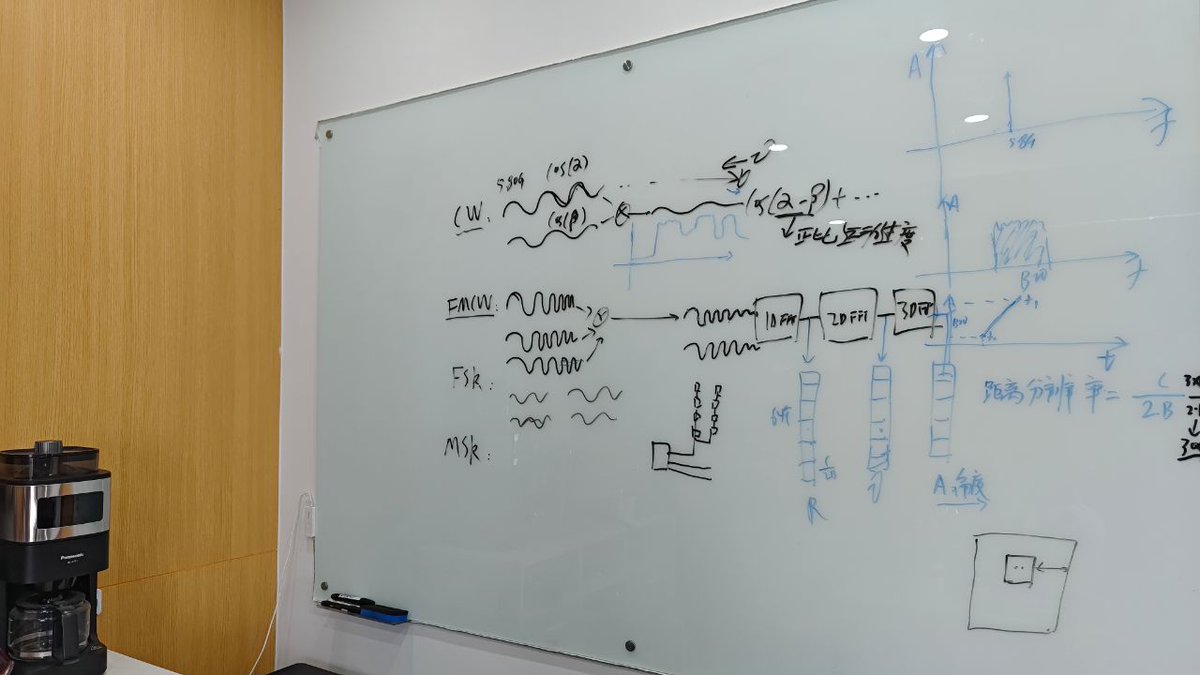 A
f
5.8G
5.8G cos(α)
v
CW: cos(β) cos(α-β)+...
正比于速度
A
f
B
FMCW: 1D FFT 2D FFT 3D FFT
t
FSK:
距离分辨率= C
2B
MSK:
R
v
A:角度
Panasonic